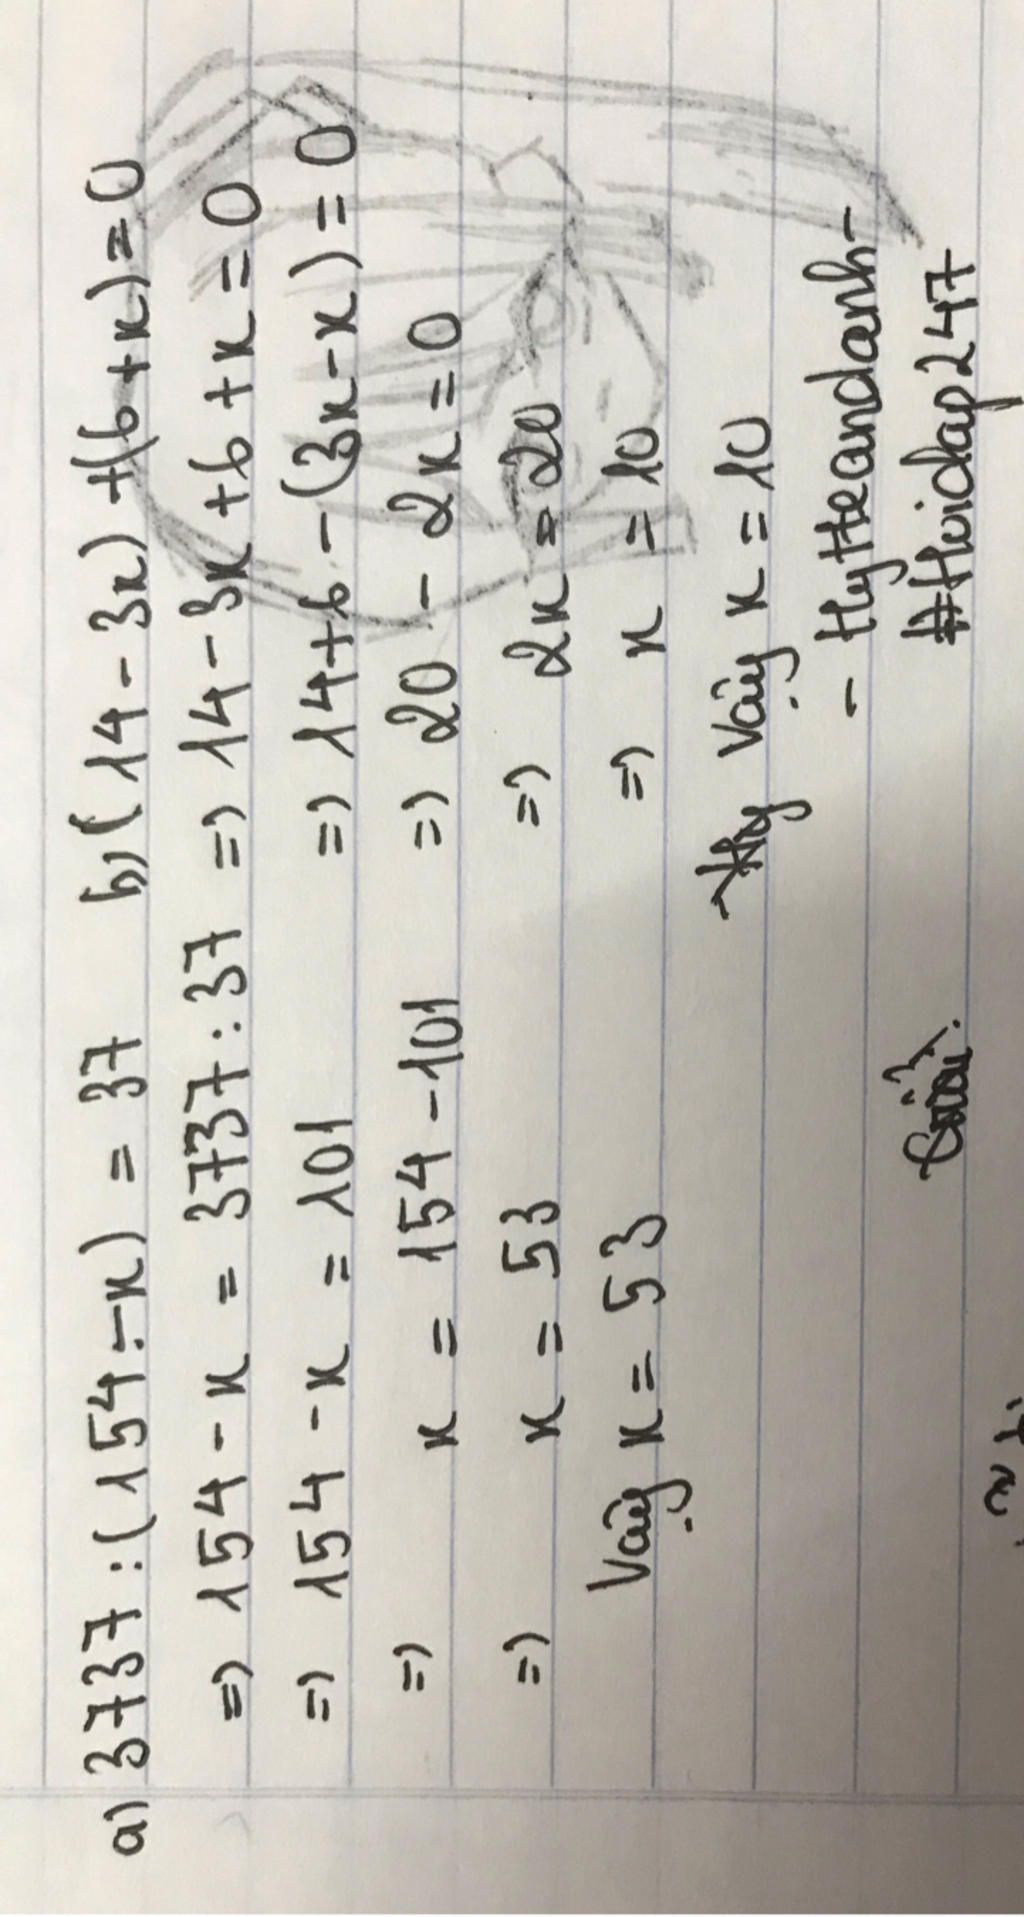 a) 3737 : (154 - x) = 37
=) 154 - x = 3737 : 37
=) 154 - x = 101
=) x = 154 - 101
=) x = 53
Vậy x = 53
b) (14 - 3x) + (6 + x) = 0
=) 14 - 3x + 6 + x = 0
=) 14 + 6 - (3x - x) = 0
=) 20 - 2x = 0
=) 2x = 20
=) x = 10
Vậy x = 10
- Hytteandanh -
#Hoidap247
Giải: